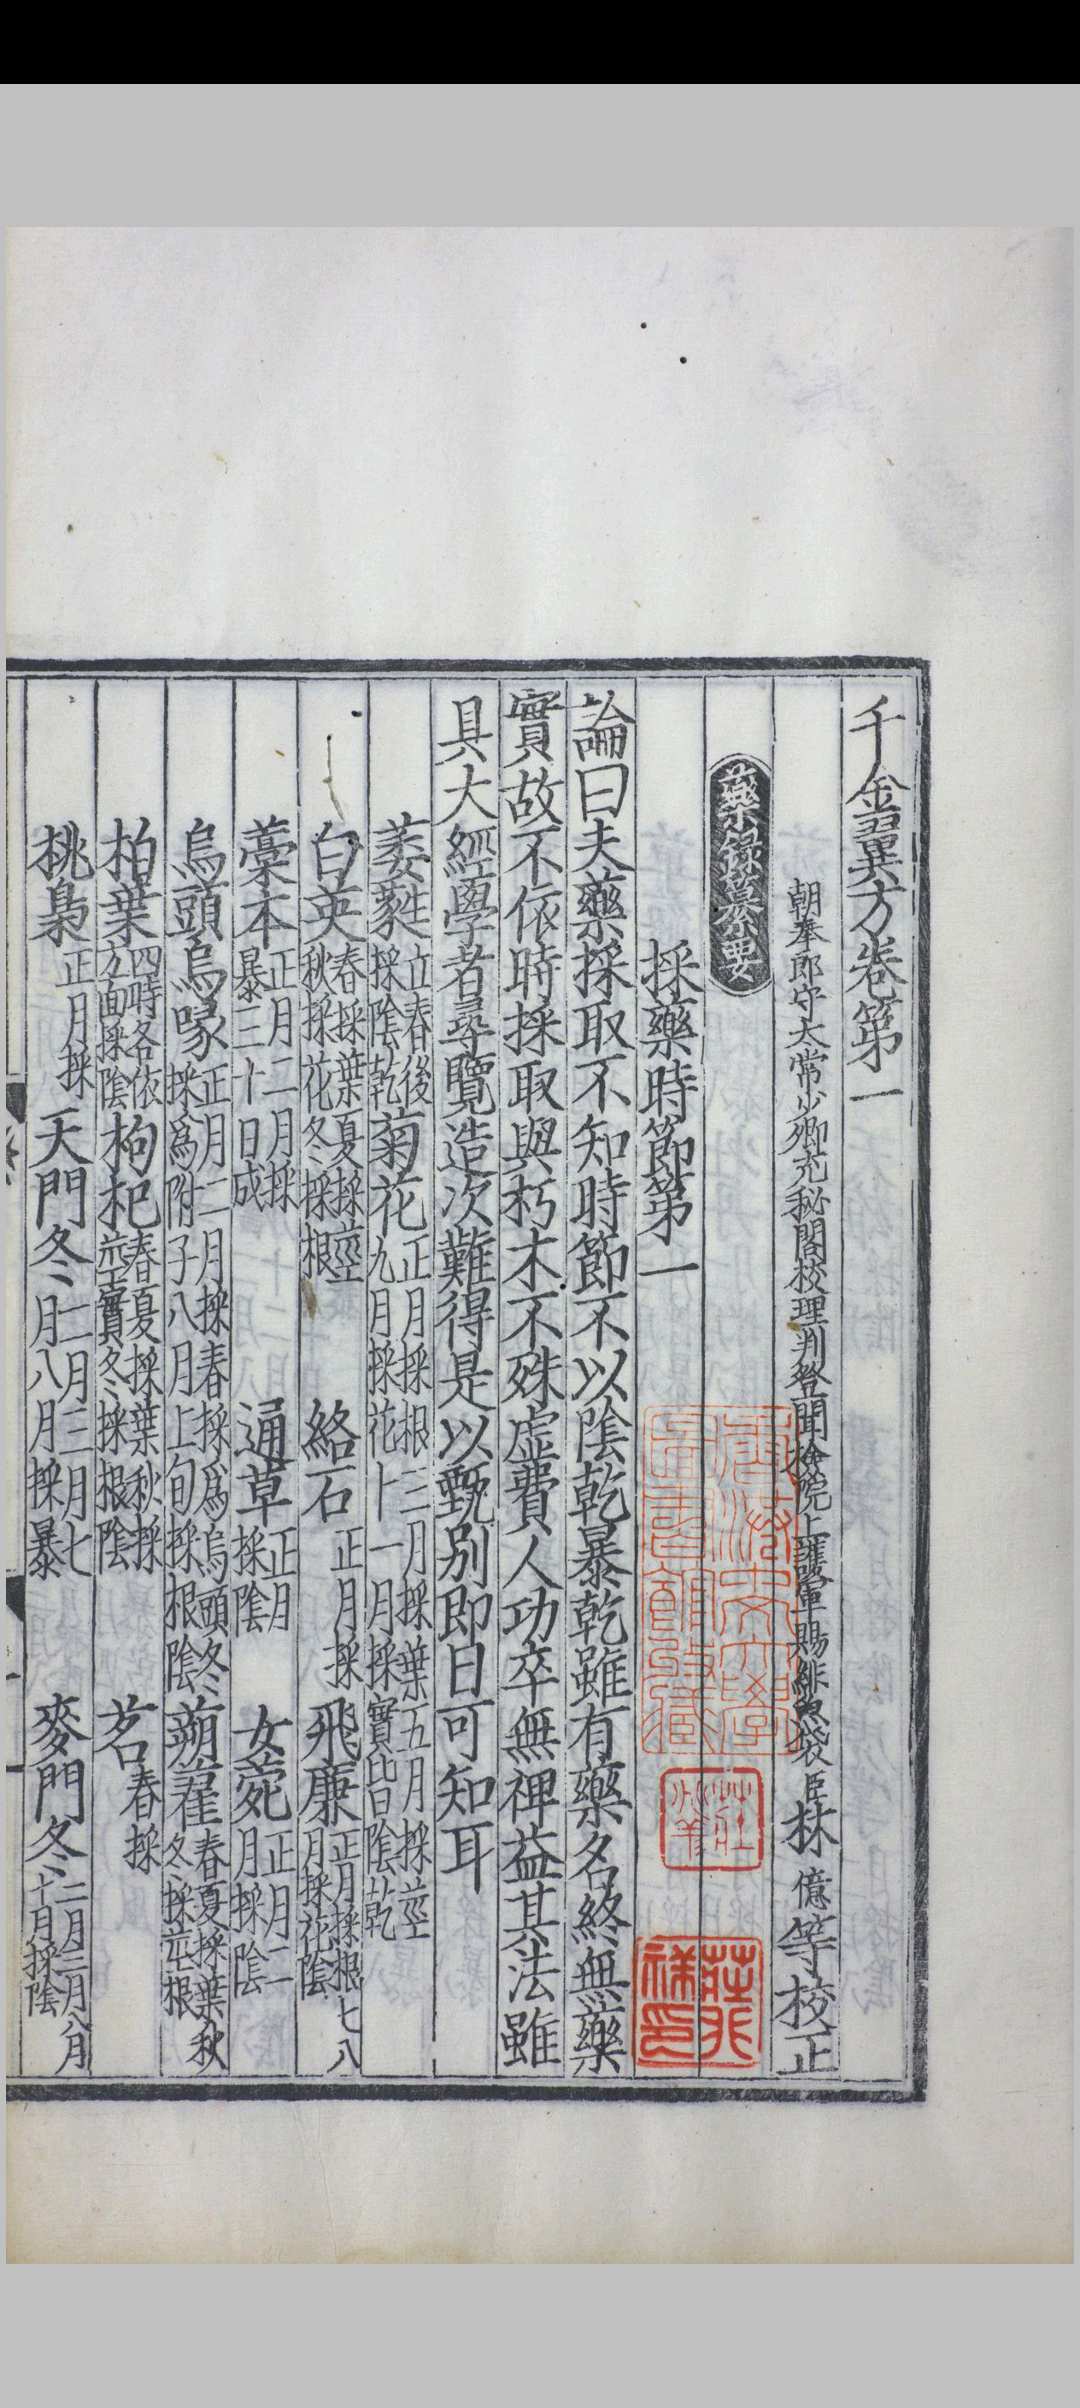 千金翼方卷第一
朝奉郎守太常少卿充秘閣校理判登聞檢院上護軍賜緋魚袋臣林億等校正
藥録纂要
採藥時節第一
論曰夫藥採取不知時節不以陰乾暴乾雖有藥名終無藥
實故不依時採取與朽木不殊虛費人功卒無裨益其法雖
具大經學者尋覽造次難得是以甄別即日可知耳
萎蕤立春後採陰乾菊花正月採根三月採葉五月採莖九月採花十一月採實皆陰乾
白英春採葉夏採莖秋採花冬採根絡石正月採飛廉正月採根七八月採花陰
藁本正月二月採暴三十日成通草正月採陰女菀正月二月採陰
烏頭烏喙正月二月採春採爲烏頭冬採爲附子八月上旬採根陰蒴藋春夏採葉秋冬採莖根
柏葉四時各依方面採陰枸杞春夏採葉秋採莖實冬採根陰茗春採
桃梟正月採天門冬二月三月七月八月採暴麥門冬二月三月八月十月採陰
莊兆祥印